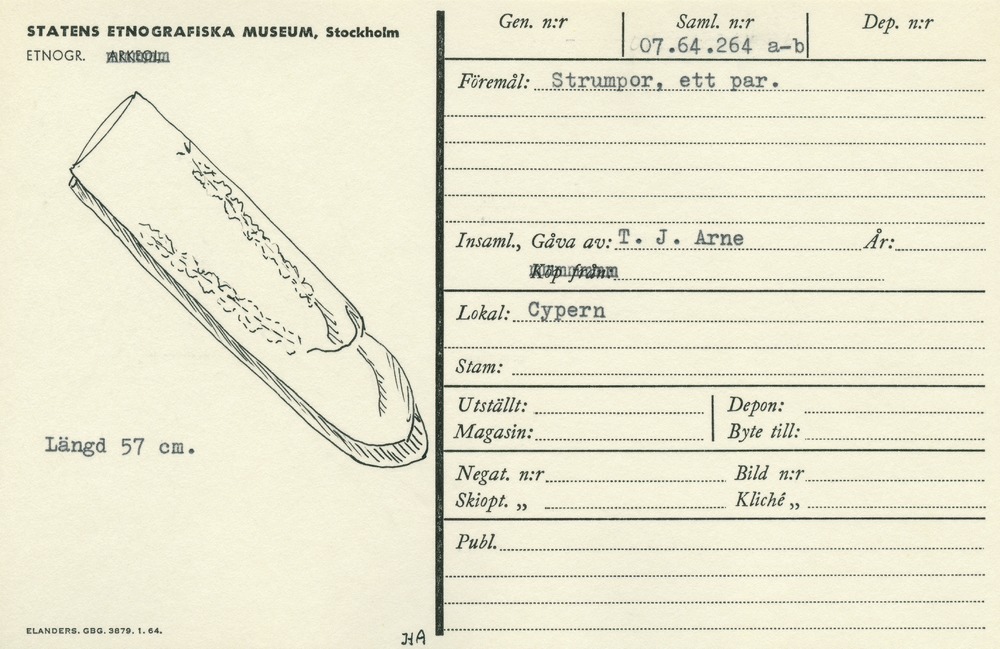 STATENS ETNOGRAFISKA MUSEUM, Stockholm
ETNOGR. ARKEOL.
Längd 57 cm.
ELANDERS. GBG. 3879. 1. 64.
HA
Gen. n:r Saml. n:r Dep. n:r
07.64.264 a-b
Föremål: Strumpor, ett par.
Insaml., Gåva av: T. J. Arne År:
Köp från:
Lokal: Cypern
Stam:
Utställt: Depon:
Magasin: Byte till:
Negat. n:r Bild n:r
Skiopt. „ Kliché „
Publ.